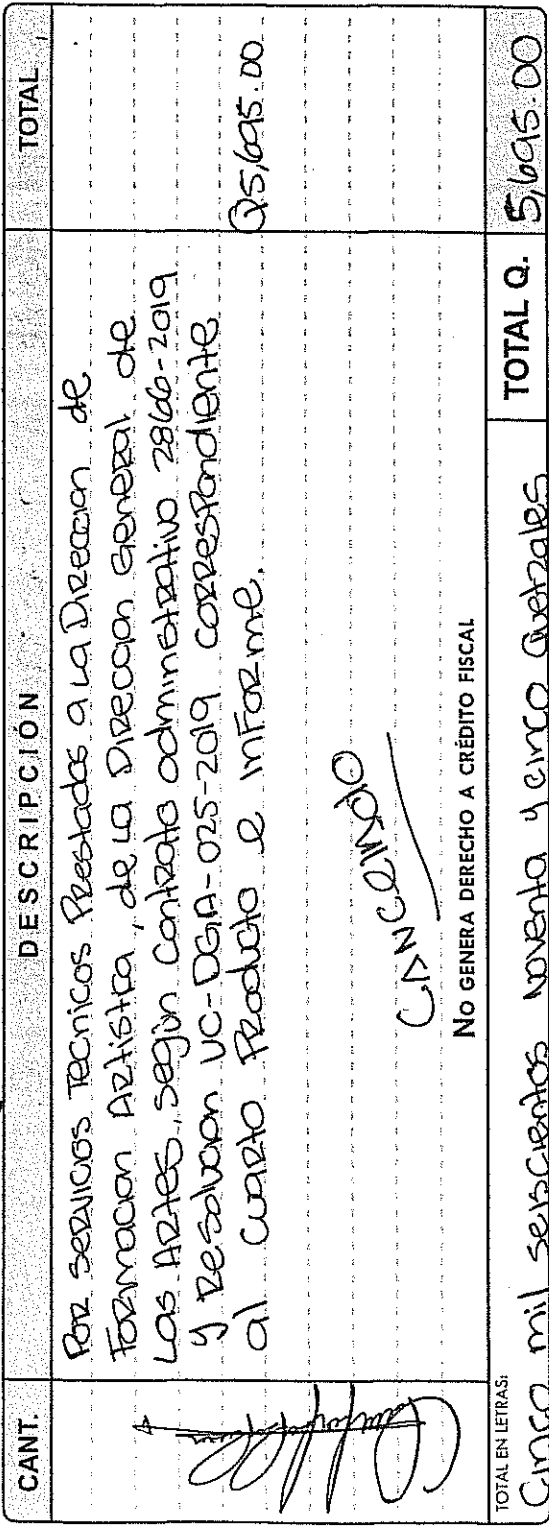 CANT. DESCRIPCIÓN TOTAL
Por servicios Tecnicos Prestados a la Direccion de
Formacion Artistica, de la Direccion General de
Las Artes, según Contrato administrativo 2866-2019
y Resolucion UC-DGA-025-2019 correspondiente
al Cuarto Producto e informe. Q5,695.00
CANCELADO
NO GENERA DERECHO A CRÉDITO FISCAL
TOTAL EN LETRAS:
Cinco mil seiscientos noventa y cinco Quetzales
TOTAL Q. 5,695.00